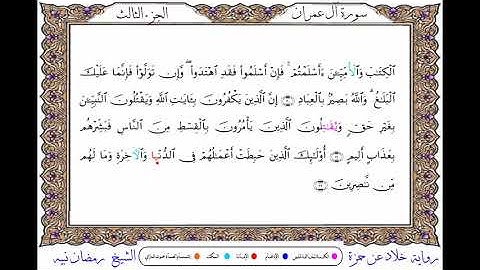 سورة آل عمران
الجزء الثالث
الْكِتَٰبَ وَالْأُمِّيِّينَ ءَأَسْلَمْتُمْ ۚ فَإِنْ أَسْلَمُوا فَقَدِ اهْتَدَوا ۖ وَّإِن تَوَلَّوْا فَإِنَّمَا عَلَيْكَ
الْبَلَٰغُ ۗ وَاللَّهُ بَصِيرٌ بِالْعِبَادِ ۝ إِنَّ الَّذِينَ يَكْفُرُونَ بِـَٔايَٰتِ اللَّهِ وَيَقْتُلُونَ النَّبِيِّـۧنَ
بِغَيْرِ حَقٍّ وَيُقَٰتِلُونَ الَّذِينَ يَأْمُرُونَ بِالْقِسْطِ مِنَ النَّاسِ فَبَشِّرْهُم
بِعَذَابٍ أَلِيمٍ ۝ أُوْلَٰٓئِكَ الَّذِينَ حَبِطَتْ أَعْمَٰلُهُمْ فِي الدُّنْيَا وَالْآخِرَةِ وَمَا لَهُم
مِّن نَّٰصِرِينَ ۝
رواية خلاد عن حمزة
الشيخ رمضان نبيه